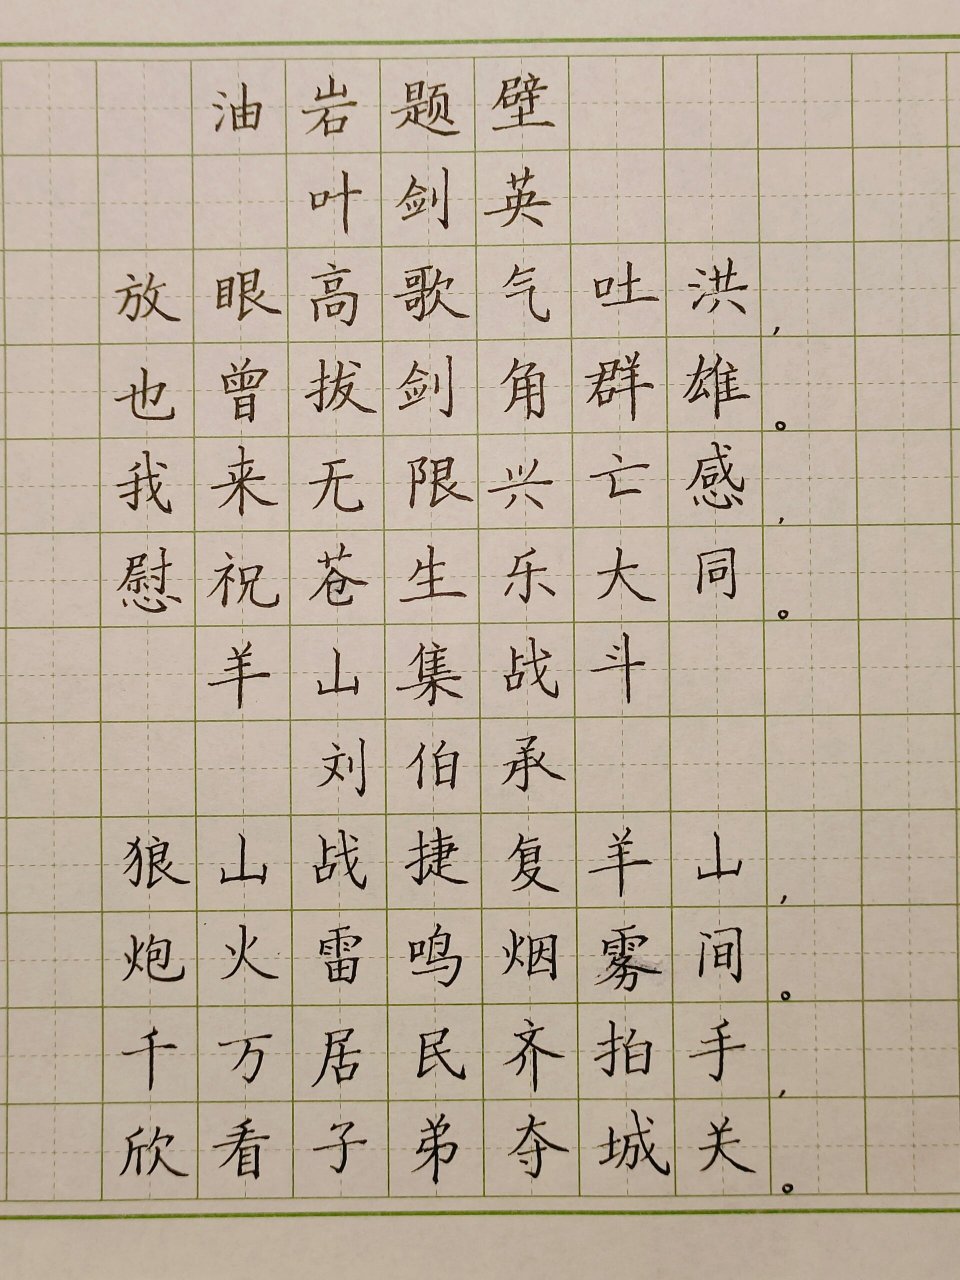 油岩题壁
叶剑英
放眼高歌气吐洪,
也曾拔剑角群雄。
我来无限兴亡感,
慰祝苍生乐大同。
羊山集战斗
刘伯承
狼山战捷复羊山,
炮火雷鸣烟雾间。
千万居民齐拍手,
欣看子弟夺城关。